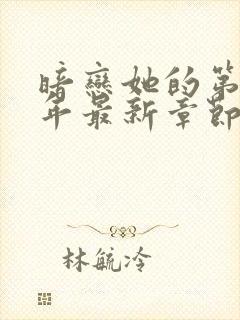 暗戀她的第
年最新章節
林毓冷